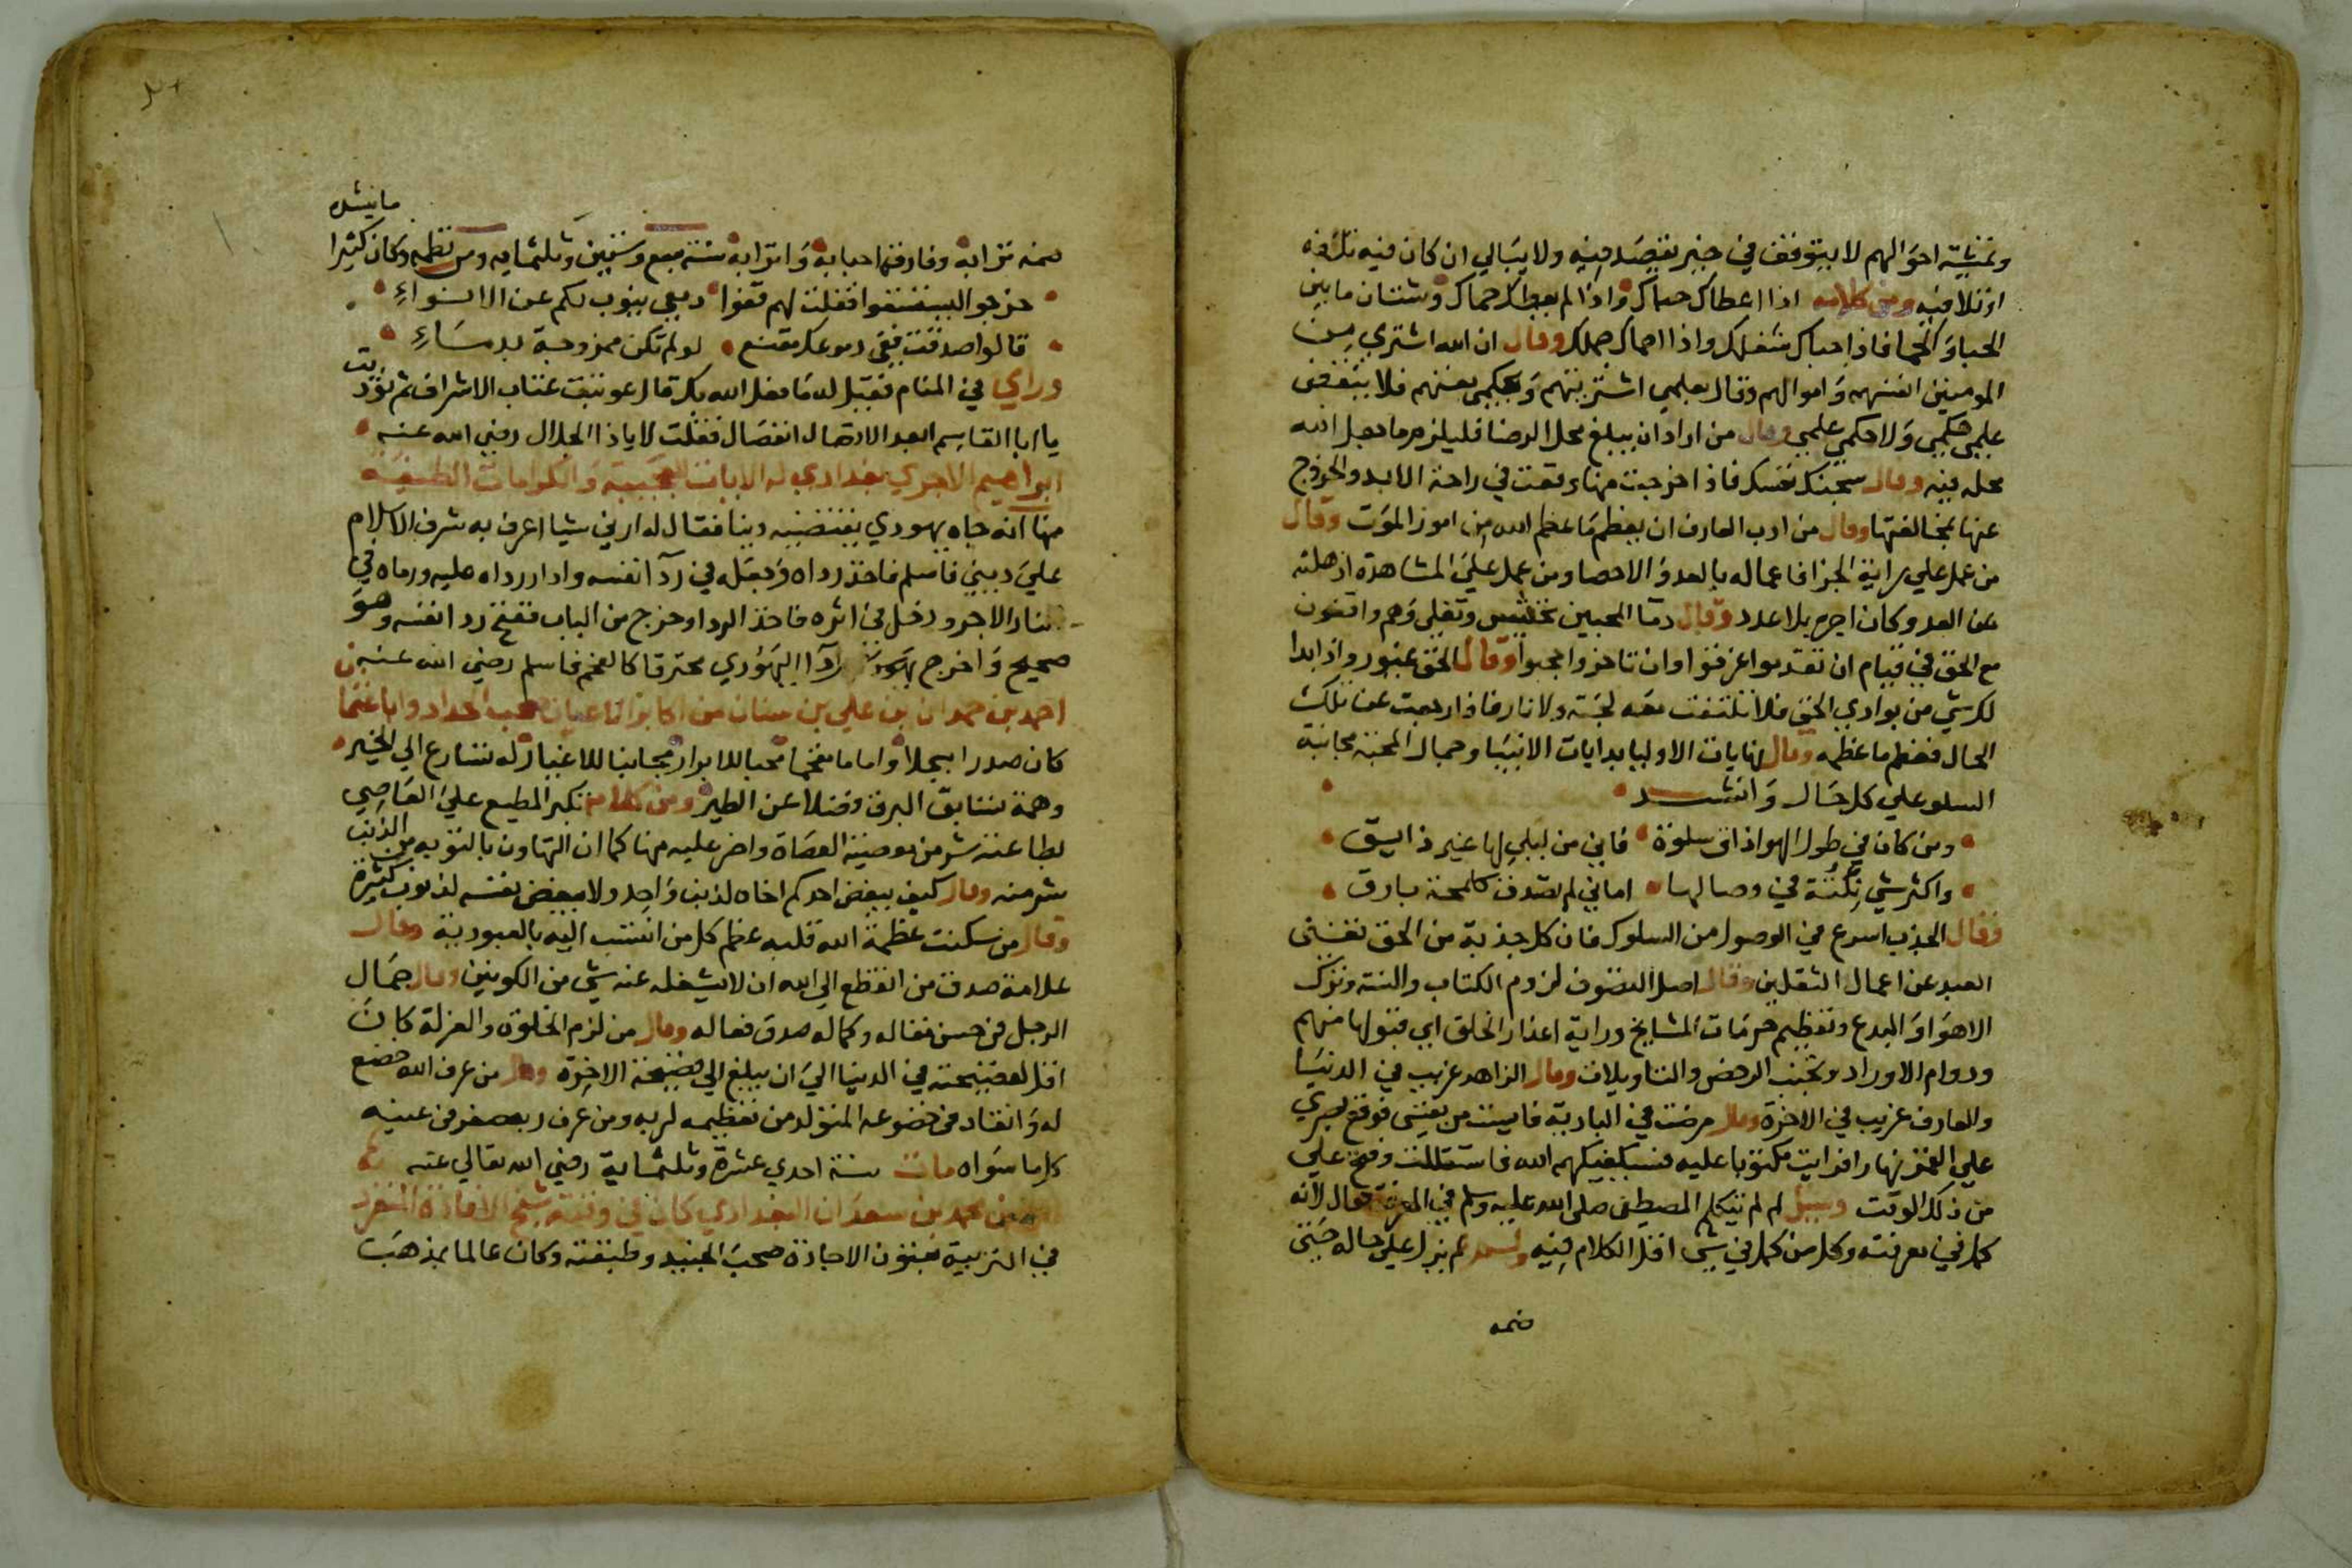 وتمشية احوالهم لا يتوقف في خير يقصد فيه ولا يبالي ان كان فيه تلافه
او تلافيه ومن كلامه اذا اعطاك حماك واذا لم يعطك حماك وشتان ما بين
الحبا والحما فاذا حباك شغلك واذا احماك حملك وقال ان الله اشتري من
المومنين انفسهم واموالهم وقال بعلمي اشتريتهم وبحكمي بعتهم فلا ينقض
علمي حكمي ولا حكمي علمي وقال من اراد ان يبلغ محل الرضا فليلزم ما جعل الله
محله فيه وقال سجنك نفسك فاذا خرجت منها وقعت في راحة الابد والخروج
عنها بمخالفتها وقال من ادب العارف ان يعظم ما عظم الله من امور الموت وقال
من عمل علي راية الجزا فاعماله بالعد والاحصا ومن عمل علي المشاهدة اذهلته
عن العد وكان اجره بلا عدد وقال دما المحبين تجيش وتغلي وهم واقفون
مع الحق في قيام ان تقدموا غرقوا وان تاخروا حجبوا وقال الحق غيور واذا بدا
لك شي من بوادي الحق فلا تلتفت معه لجنة ولا نار فاذا رجعت عن تلك
الحال فعظم ما عظمه وقال نهايات الاوليا بدايات الانبيا وحمال المحنة مجانبة
السلو علي كل حال وانشد
ومن كان في طول الهوا ذاق سلوة فاني من ليلي لها غير ذايق
واكثر شي نلته في وصالها اماني لم تصدق كلمحة بارق
وقال الجذب اسرع في الوصول من السلوك فان كل جذبة من الحق تغني
العبد عن اعمال الثقلين وقال اصل التصوف لزوم الكتاب والسنة وترك
الاهوا والبدع وتعظيم حرمات المشايخ وراية اعذار الخلق اي قبولها منهم
ودوام الاوراد وتجنب الرخص والتاويلات وقال الزاهد غريب في الدنيا
والعارف غريب في الاخرة وقال مرضت في البادية فايست من نفسي فوقع بصري
علي القمر نهارا فرايت مكتوبا عليه فسيكفيكهم الله فاستقللت وفتح علي
من ذلك الوقت وسيل لم لم يتكلم المصطفي صلي الله عليه وسلم في المعرفة فقال لانه
كمل في معرفته وكل من كمل في شي اقل الكلام فيه ولم يزل علي حاله حتي
ضمه
ما ينشده
ضمه ترابه وفارقها احبابه واترابه سنة سبع وستين وثلثمايه ومن نظمه وكان كثيرا
خرجوا ليستسقوا فقلت لهم قفوا دمعي ينوب لكم عن الانواء
قالوا صدقت ففي دموعك مقنع لو لم تكن ممزوجة بدماء
وراي في المنام فقيل له ما فعل الله بك قال عوتبت عتاب الاشراف ثم نوديت
يا ابا القاسم ابعد الاتصال انفصال فقلت لا يا ذا الجلال رضي الله عنه
ابراهيم الاجري بغدادي له الايات العجيبة والكرامات اللطيفة
منها انه جاه يهودي يقتضيه دينا فقال له ارني شيا اعرف به شرف الاسلام
علي ديني فاسلم فاخذ رداه وجعله في ردآ نفسه وادار رداه عليه ورماه في
نار الاجر ودخل في اثره فاخذ الردا وخرج من الباب ففتح ردا نفسه وهو
صحيح واخرج ردآ اليهودي محترقا كالفحم فاسلم رضي الله عنه
احمد بن حمدان بن علي بن سنان من اكابر الاعيان صحب الحداد وابا عثما
ن
كان صدرا مبجلا واماما مفخما محبا للابرار مجانبا للاغيار له تسارع الي الخير
وهمة تسابق البرق فضلا عن الطير ومن كلامه تكبر المطيع علي العاصي
بطاعته شر من معصية العصاة واضر عليه منها كما ان التهاون بالتوبه من الذنب
شر منه وقال كيف يبغض احدكم اخاه لذنب واحد ولا يبغض نفسه لذنوب كثيرة
وقال من سكنت عظمة الله قلبه عظم كل من انتسب اليه بالعبودية وقال
علامة صدق من انقطع الي الله ان لا يشغله عنه شي من الكونين وقال جمال
الرجل في حسن مقاله وكماله صدق فعاله وقال من لزم الخلوة والعزلة كان
اقل لفضيحته في الدنيا الي ان يبلغ الي فضيحة الاخرة وقال من عرف الله خضع
له وانقاد في خضوعه المتولد من تعظيمه لربه ومن عرف ربه صغر في عينه
كل ما سواه مات سنة احدي عشرة وثلثماية رضي الله تعالي عنه
محمد بن سعدان البغدادي كان في وقته شيخ الافادة المنفرد
في التربية بفنون الاجادة صحب الجنيد وطبقته وكان عالما بمذهب